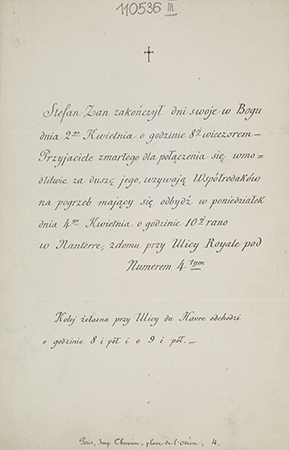 110536 III
Stefan Zan zakończył dni swoje w Bogu
dnia 2go Kwietnia o godzinie 8éj wieczorem –
Przyjaciele zmarłego dla połączenia się w mo=
dlitwie za duszę jego, wzywają Współrodaków
na pogrzeb mający się odbydź w poniedziałek
dnia 4go Kwietnia o godzinie 10éj rano
w Nanterre, z domu przy Ulicy Royale pod
Numerem 4tym
Kolej żelazna przy Ulicy du Havre odchodzi
o godzinie 8 i pół i o 9 i pół. –
Paris, Imp. Chauvin, place de l'Odéon, 4.